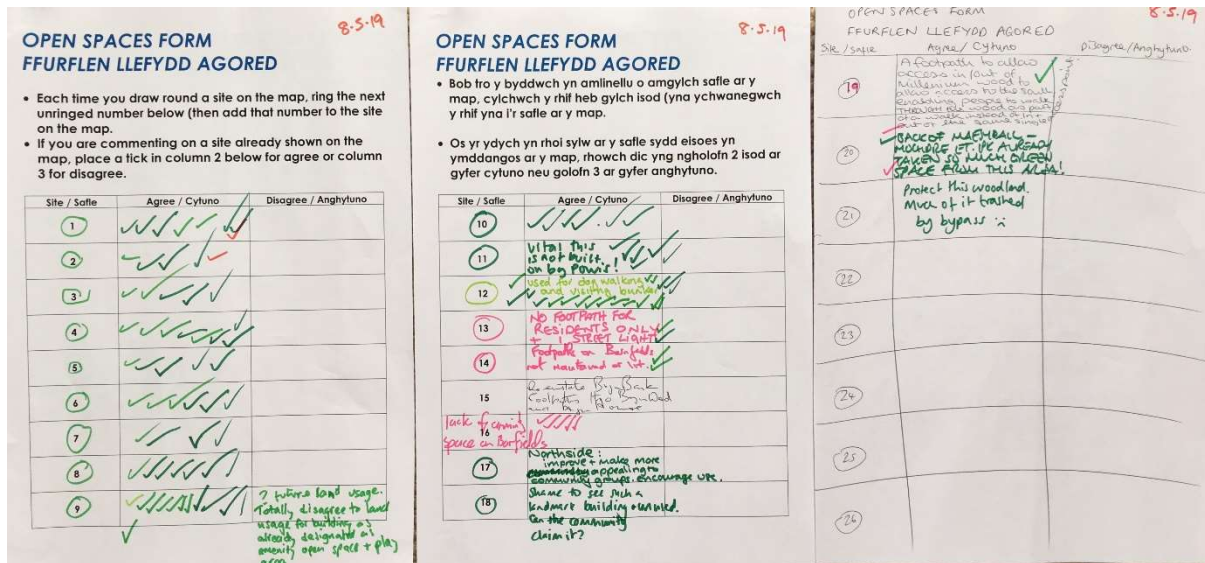 8.5.19
OPEN SPACES FORM
FFURFLEN LLEFYDD AGORED
• Each time you draw round a site on the map, ring the next
unringed number below (then add that number to the site
on the map.
• If you are commenting on a site already shown on the
map, place a tick in column 2 below for agree or column
3 for disagree.
Site / Safle Agree / Cytuno Disagree / Anghytuno
1
2
3
4
5
6
7
8
9
? future land usage.
Totally disagree to land
usage for building as
already designated as
amenity open space + play
area
8.5.19
OPEN SPACES FORM
FFURFLEN LLEFYDD AGORED
• Bob tro y byddwch yn amlinellu o amgylch safle ar y
map, cylchwch y rhif heb gylch isod (yna ychwanegwch
y rhif yna i'r safle ar y map.
• Os yr ydych yn rhoi sylw ar y safle sydd eisoes yn
ymddangos ar y map, rhowch dic yng ngholofn 2 isod ar
gyfer cytuno neu golofn 3 ar gyfer anghytuno.
Site / Safle Agree / Cytuno Disagree / Anghytuno
10
11 Vital this
is not built
on by Powis!
12 used for dog walking
and visiting bunker
13 NO FOOTPATH FOR
RESIDENTS ONLY
+ 1 STREET LIGHT
14 Footpaths on
not maintained or lit.
15 Bryn Bank
Footpaths
16 lack of
space on
17 Northside:
improve + make more
appealing to
community groups. encourage use.
18 Shame to see such a
landmark building
Can the community
claim it?
8.5.19
OPEN SPACES FORM
FFURFLEN LLEFYDD AGORED
Site / Safle Agree / Cytuno Disagree / Anghytuno
19 A footpath to allow
access in/out of
Millennium wood to
allow access to the south
enabling people to walk
THROUGH the wood as part
of a walk instead of in +
out of the same single
access point
20 BACK OF MAENBALL -
MOCHDRE ALREADY
TAKEN SO MUCH GREEN
SPACE FROM THIS AREA!
21 Protect this woodland.
Much of it trashed
by bypass
22
23
24
25
26